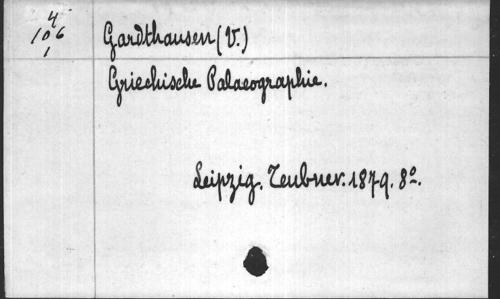 4
106
1
Gardthausen (V.)
Griechische Palaeographie.
Leipzig. Teubner. 1879. 8º.